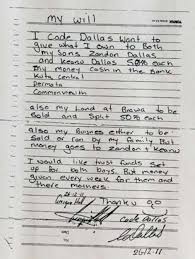 My Will
I Cade Dallas Want to
give what I own to Both
My Sons Zandon Dallas
and Keano Dallas 50% each
My money Cash in the Bank
Kuta Central
Permata
Commonwealth
also my Land at Brawa to be
Sold and Split 50% each
also my Busines either to be
Sold or ran by my family But
money goes to Zandon &
I would like trust funds set
up for both Boys. But money
given every week for them and
there mothers.
Thanku
28-12-11
Cade Dallas
28-12-11